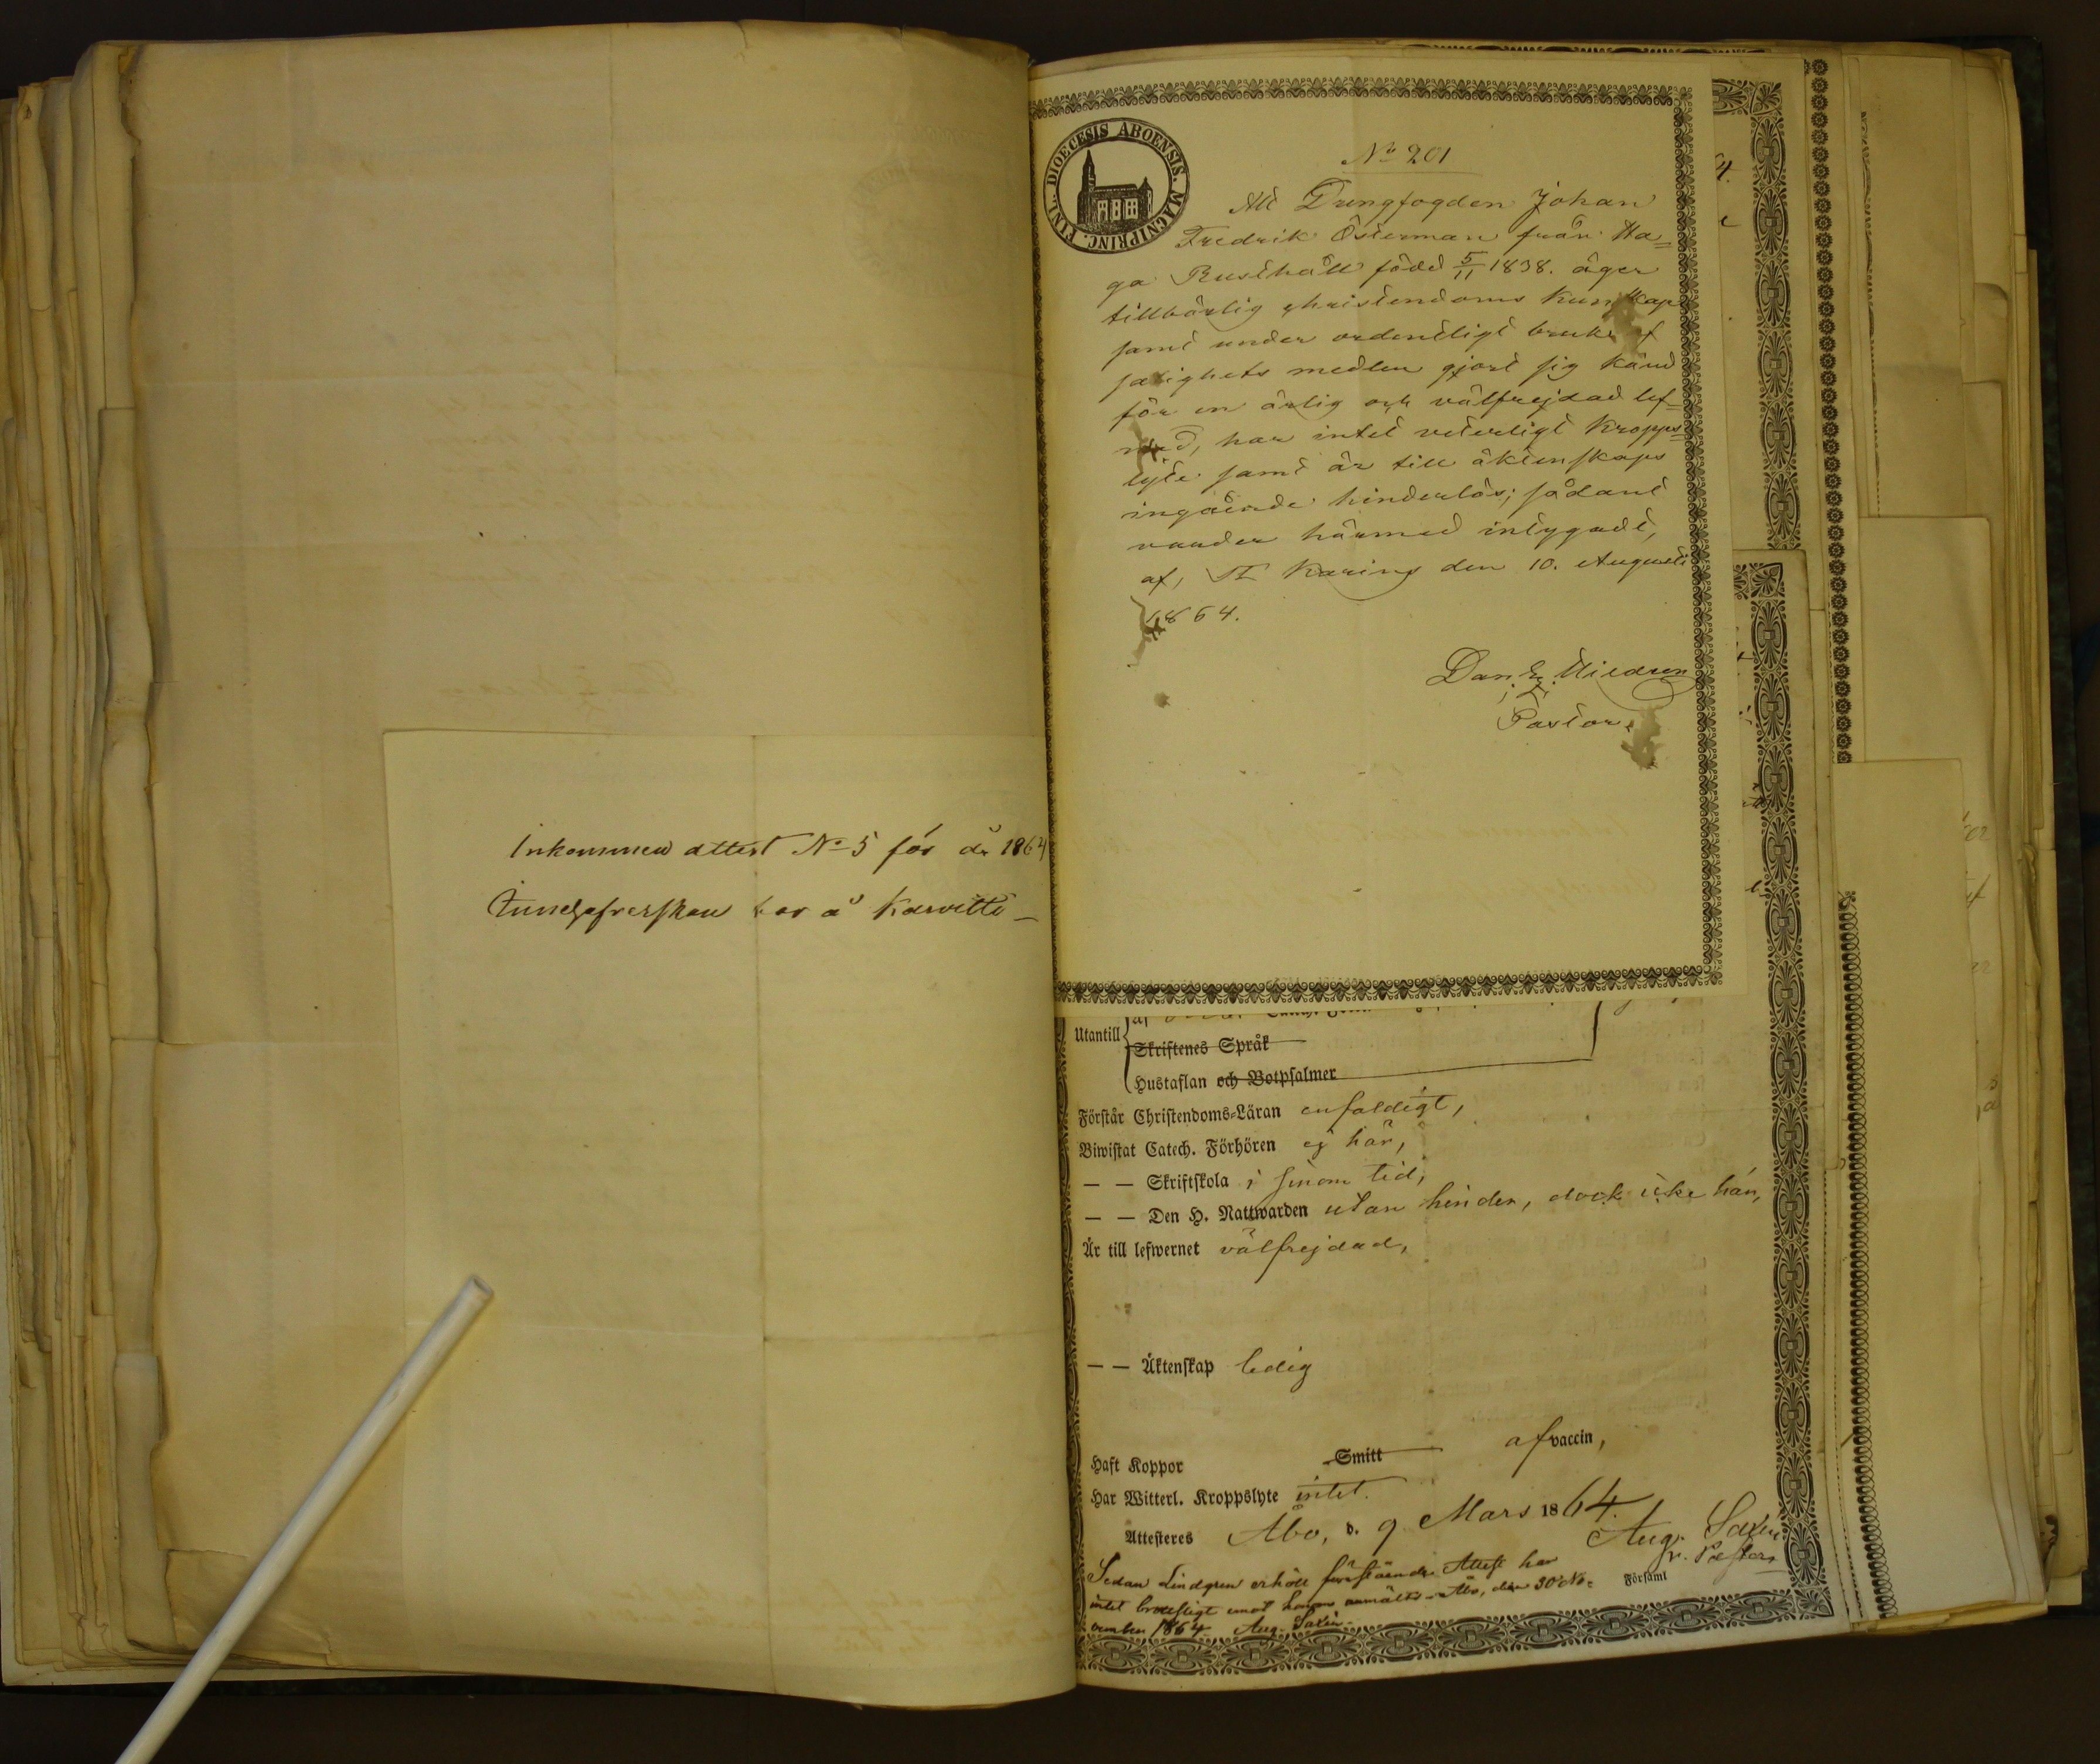 Inkommen attest No 5 för år 1864
bor å Karvitti
FINL. DIOECESIS ABOENSIS. MAGNIPRINC.
No 201
Att Drengfogden Johan
Fredrik Österman från Ha=
ga Rusthåll född 5/11 1838. äger
tillbörlig christendoms kunskap
samt under ordentligt bruk af
salighets medlen gjort sig känd
för en ärlig och välfrejdad lef=
nad, har intet veterligt kropps=
lyte samt är till äktenskaps
ingående hinderlös; sådant
varder härmed intygadt,
af, St Karins den 10. Augusti
1864.
Dan. E.
Pastor.
Utantill
Skriftenes Språk
Hustaflan och Botpsalmer
Förstår Christendoms-Läran enfaldigt,
Biwistat Catech. Förhören ej här,
— — Skriftskola i sinom tid,
— — Den H. Nattwarden utan hinder, dock icke här,
Är till lefwernet välfrejdad,
— — Äktenskap ledig
Haft Koppor Smitt af vaccin,
Har Witterl. Kroppslyte intet.
Attesteras Åbo, d. 9 Mars 1864.
Aug.
v. Pastor
Församl
Sedan Lindgren erhöll föreståendes Attest har
intet brottsligt emot honom anmälts. Åbo, den 30 No=
vember 1864. Aug.